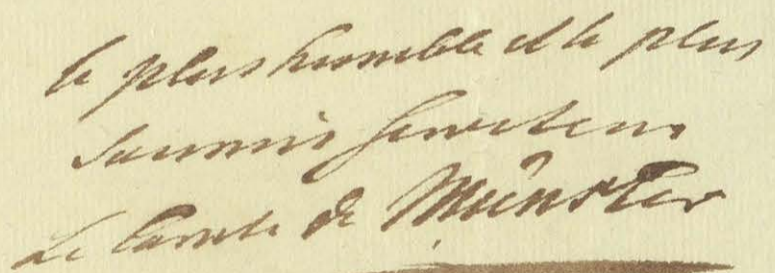 le plus humble et le plus
soumis serviteur
Le Comte de Münster